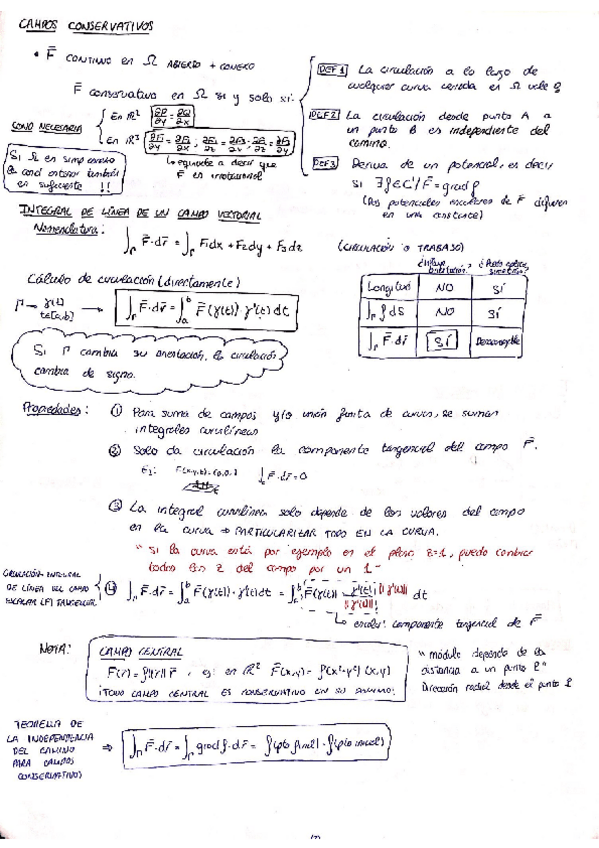 CAMPOS CONSERVATIVOS
• F̄ CONTINUO EN Ω ABIERTO + CONEXO
F̄ conservativo en Ω si y solo si:
DEF 1 La circulación a lo largo de
cualquier curva cerrada en Ω vale 0
DEF 2 La circulación desde punto A a
un punto B es independiente del
camino.
DEF 3 Deriva de un potencial, es decir
si ∃ f ∈ C¹ / F̄ = grad f
(Dos potenciales escalares de F̄ difieren
en una constante)
COND NECESARIA
En R² ∂P/∂y = ∂Q/∂x
En R³ ∂F₁/∂y = ∂F₂/∂x ; ∂F₁/∂z = ∂F₃/∂x ; ∂F₂/∂z = ∂F₃/∂y
↳ equivale a decir que
F̄ es irrotacional
Si Ω es simp conexo
la cond anterior también
es suficiente !!
INTEGRAL DE LÍNEA DE UN CAMPO VECTORIAL
Nomenclatura:
∫Γ F̄·dr̄ = ∫Γ F₁dx + F₂dy + F₃dz
(CIRCULACIÓN O TRABAJO)
Cálculo de circulación (directamente)
Γ → γ(t)
t∈[a,b]
⇒ ∫Γ F̄·dr̄ = ∫ₐᵇ F̄(γ(t))·γ'(t) dt
Longitud NO SÍ
∫Γ f ds NO SÍ
∫Γ F̄·dr̄ SÍ
Si Γ cambia su orientación, la circulación
cambia de signo.
Propiedades:
① Para suma de campos y/o unión finita de curvas, se suman
integrales curvilíneas
② Solo da circulación la componente tangencial del campo F̄.
Ej: F(x,y,z) = (0,0,1) ∫Γ F̄·dr̄ = 0
③ La integral curvilínea solo depende de los valores del campo
en la curva ⇒ PARTICULARIZAR TODO EN LA CURVA.
"Si la curva está por ejemplo en el plano z=1, puedo cambiar
todas las z del campo por un 1"
CIRCULACIÓN = INTEGRAL
DE LÍNEA DEL CAMPO
ESCALAR (F) TANGENCIAL
④ ∫Γ F̄·dr̄ = ∫ₐᵇ F̄(γ(t))·γ'(t) dt = ∫ₐᵇ F̄(γ(t))· γ'(t)/||γ'(t)|| ||γ'(t)|| dt
↳ escalar: componente tangencial de F̄
NOTA:
CAMPO CENTRAL
F̄(r̄) = f(||r̄||) r̄ , ej: en R² F̄(x,y) = f(x²+y²) (x,y)
¡TODO CAMPO CENTRAL ES CONSERVATIVO EN SU DOMINIO!
"módulo depende de la
distancia a un punto P"
Dirección radial desde el punto P
TEOREMA DE
LA INDEPENDENCIA
DEL CAMINO
PARA CAMPOS
CONSERVATIVOS
⇒ ∫Γ F̄·dr̄ = ∫Γ grad f·dr̄ = f(pto final) - f(pto inicial)